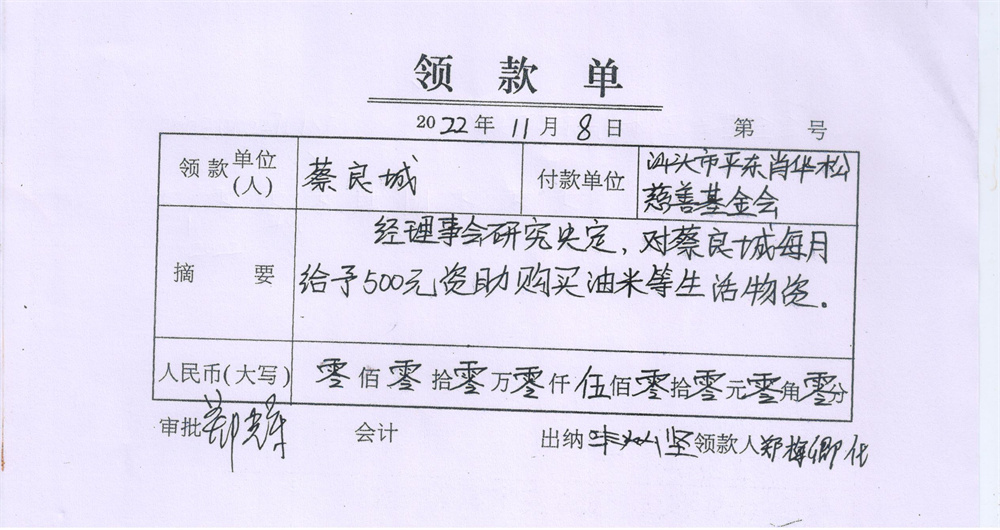 领款单
2022年11月8日 第 号
领款单位(人) 蔡良城 付款单位 汕头市平东肖华松
慈善基金会
摘要 经理事会研究决定，对蔡良城每月
给予500元资助购买油米等生活物资.
人民币(大写) 零佰零拾零万零仟伍佰零拾零元零角零分
审批 会计 出纳 领款人郑梅卿代